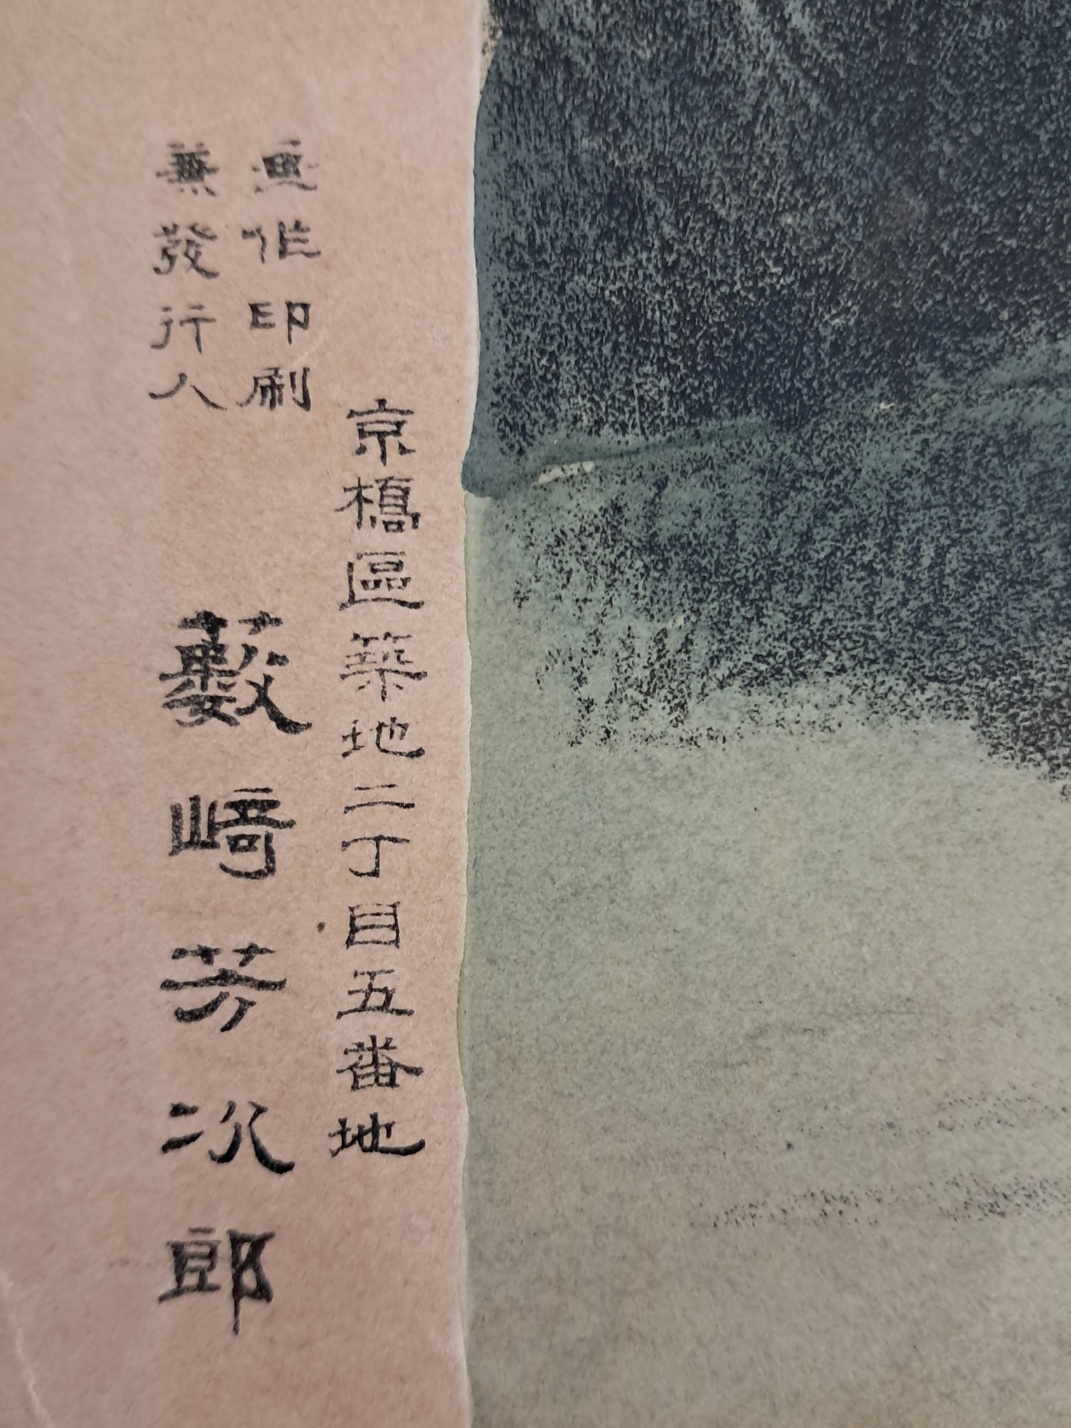 京橋區築地二丁目五番地
画作印刷
兼發行人
藪﨑芳次郎